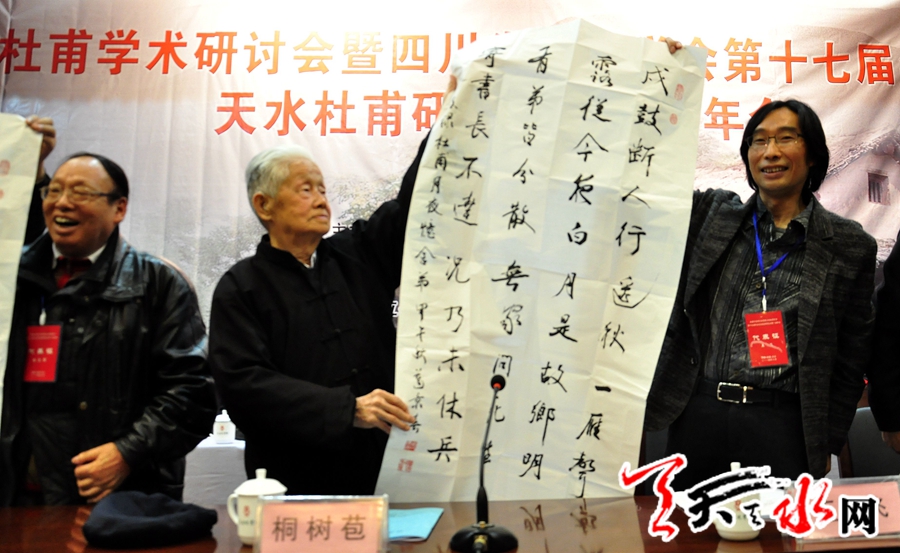 杜甫学术研讨会暨四川 会第十七届
天水杜甫研 年
戍鼓断人行遥秋一雁聲
露從今夜白月是故鄉明
有弟皆分散無家問死生
寄書長不達况乃未休兵
杜甫月夜憶舍弟甲午
代表证
代表证
桐树苞
天天水网